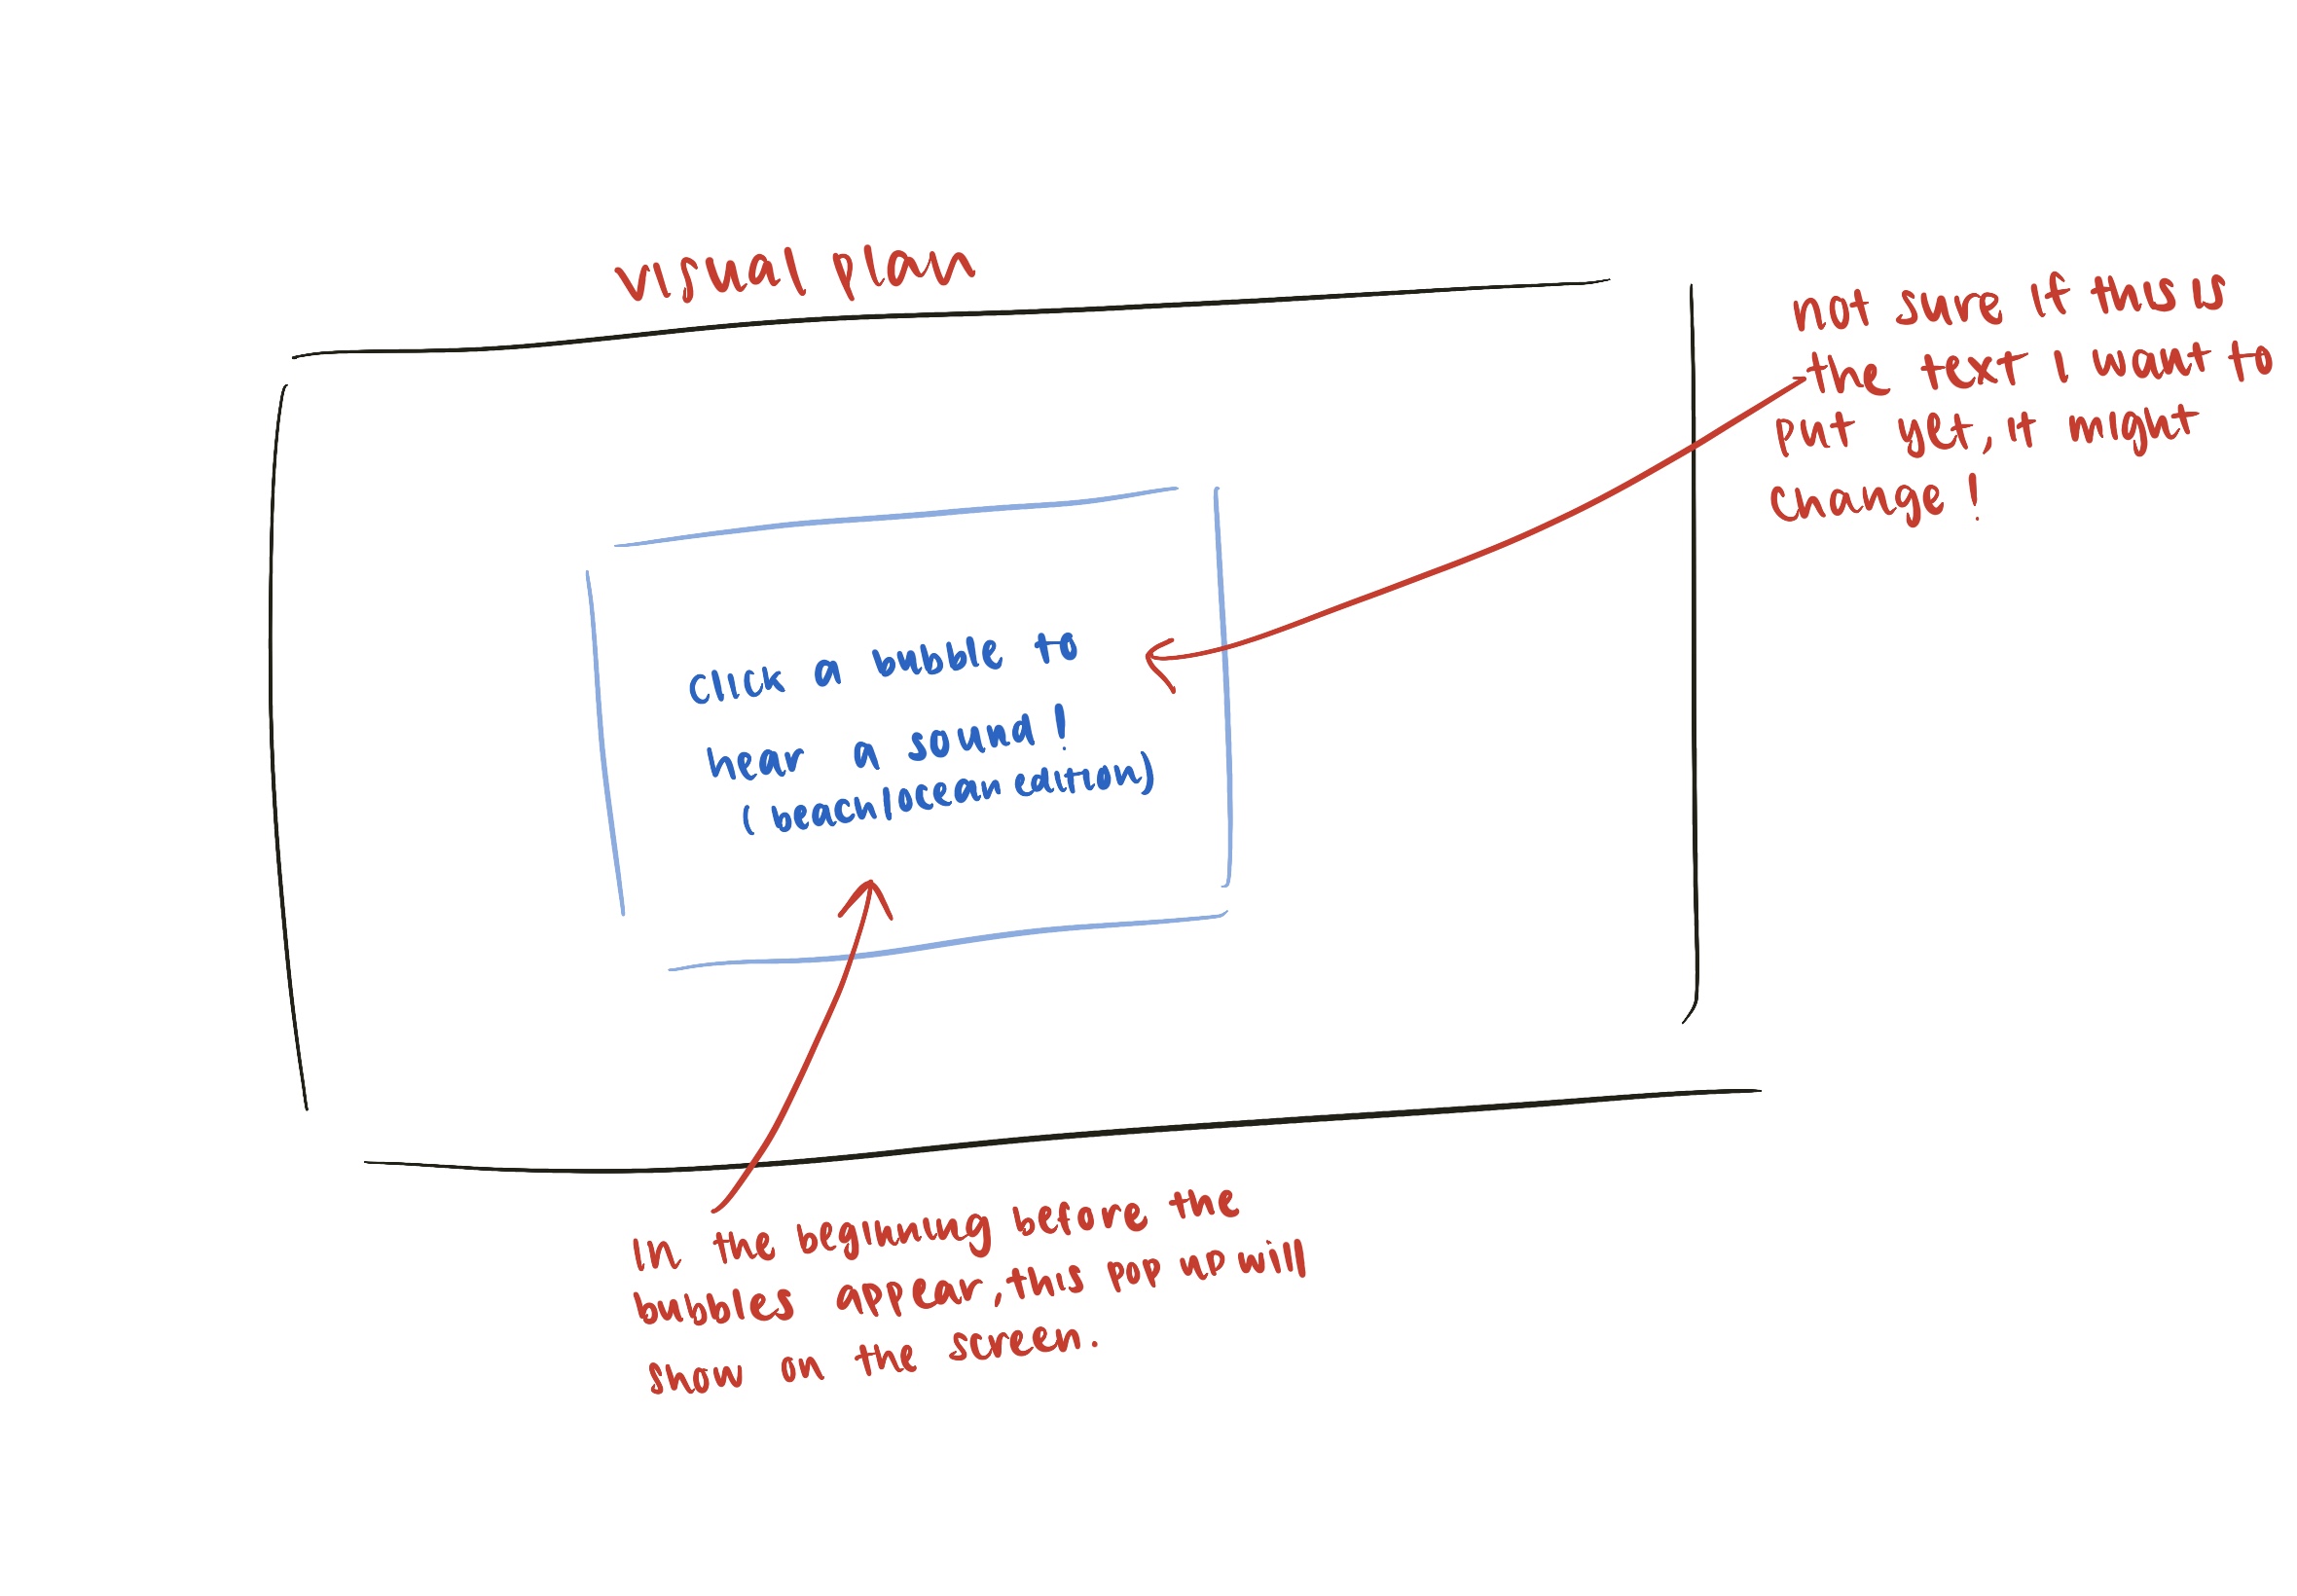 visual plan
not sure if this is
the text I want to
put yet, it might
change!
click a bubble to
hear a sound!
(beach/ocean edition)
In the beginning before the
bubbles appear, this pop up will
show on the screen.